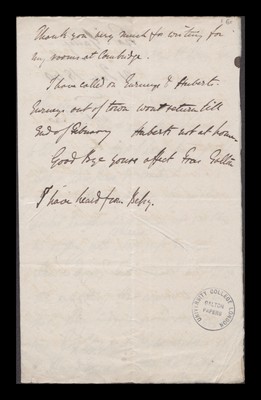 Thank you very much for writing for
my rooms at Cambridge.
I have called on Gurneys & Huberts.
Gurneys out of town wont return till
2nd of February Huberts not at home
Good Bye yours affect Fras Galton
I have heard from Betsy.
UNIVERSITY COLLEGE LONDON
GALTON
PAPERS